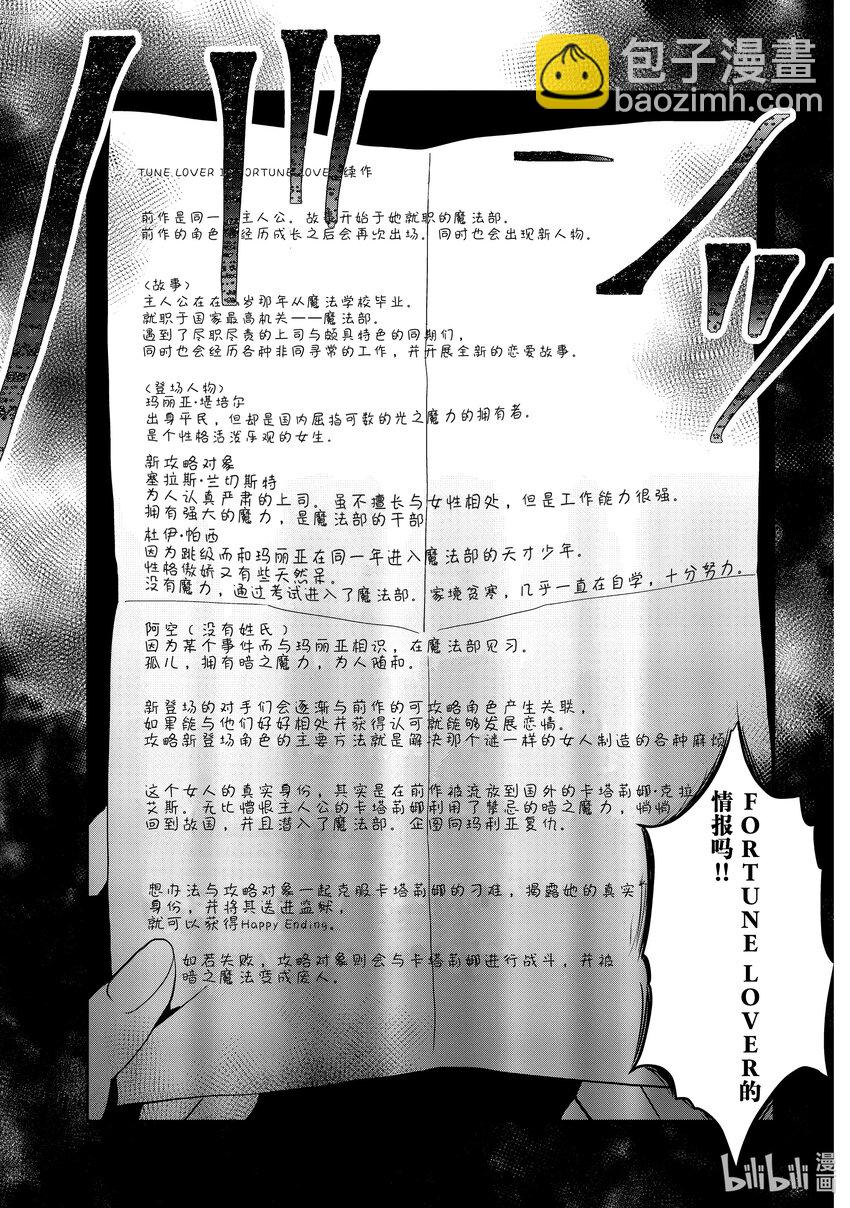 包子漫畫
baozimh.com
TUNE LOVER I ORTUNE LOVE 续作
前作是同一 主人公。故事开始于她就职的魔法部。
前作的角色 经历成长之后会再次出场。同时也会出现新人物。
(故事)
主人公在在 岁那年从魔法学校毕业。
就职于国家最高机关——魔法部。
遇到了尽职尽责的上司与颇具特色的同期们,
同时也会经历各种非同寻常的工作,并开展全新的恋爱故事。
(登场人物)
玛丽亚·堪培尔
出身平民,但却是国内屈指可数的光之魔力的拥有者。
是个性格活泼乐观的女生。
新攻略对象
塞拉斯·兰切斯特
为人认真严肃的上司。虽不擅长与女性相处,但是工作能力很强。
拥有强大的魔力,是魔法部的干部
杜伊·帕西
因为跳级而和玛丽亚在同一年进入魔法部的天才少年。
性格傲娇又有些天然呆。
没有魔力,通过考试进入了魔法部。家境贫寒,几乎一直在自学,十分努力。
阿空(没有姓氏)
因为某个事件而与玛丽亚相识,在魔法部见习。
孤儿,拥有暗之魔力,为人随和。
新登场的对手们会逐渐与前作的可攻略角色产生关联,
如果能与他们好好相处并获得认可就能够发展恋情。
攻略新登场角色的主要方法就是解决那个谜一样的女人制造的各种麻烦
这个女人的真实身份,其实是在前作被流放到国外的卡塔莉娜·克拉
艾斯。无比憎恨主人公的卡塔莉娜利用了禁忌的暗之魔力,悄悄
回到故国,并且潜入了魔法部。企图向玛利亚复仇。
想办法与攻略对象一起克服卡塔莉娜的刁难,揭露她的真实
身份,并将其送进监狱,
就可以获得Happy Ending。
如若失败,攻略对象则会与卡塔莉娜进行战斗,并被
暗之魔法变成废人。
FORTUNE LOVER的
情报吗!!
bilibili漫画